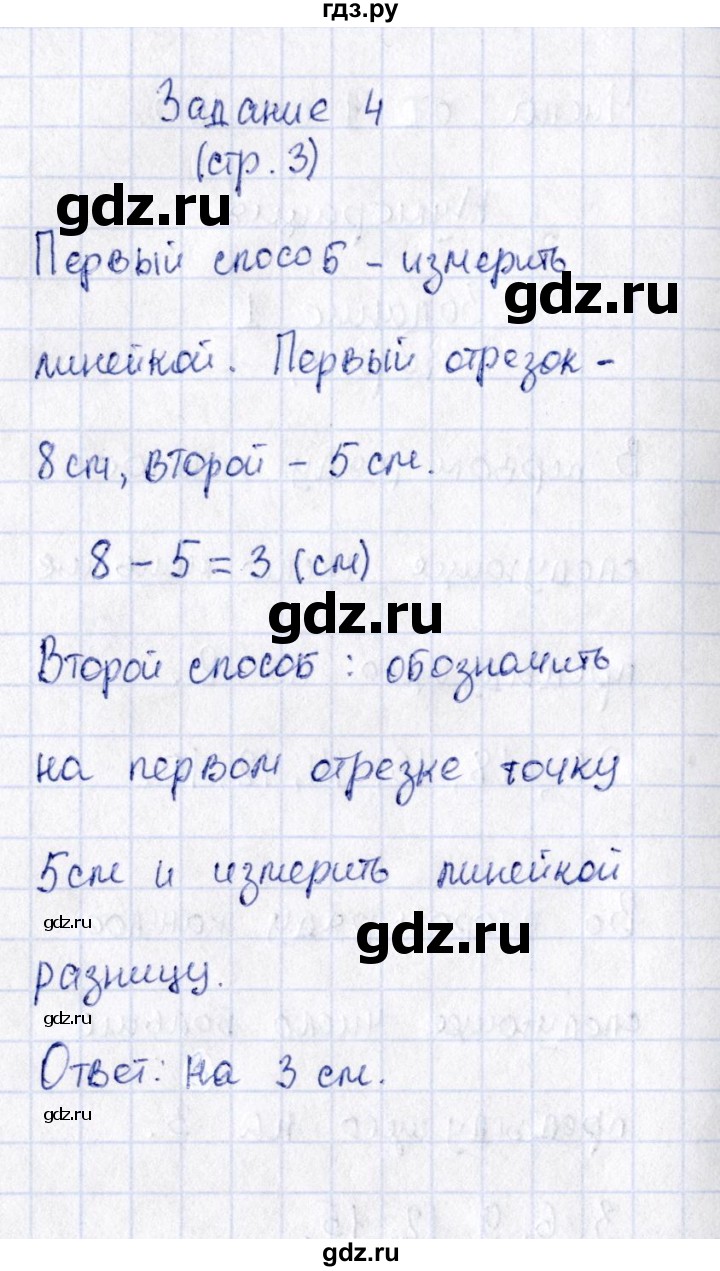 гдз.ру
Задание 4
(стр. 3)
gdz.ru
Первый способ - измерить
gdz.ru
линейкой. Первый отрезок -
8 см, второй - 5 см.
8 - 5 = 3 (см)
gdz.ru
Второй способ: обозначить
на первом отрезке точку
5 см и измерить линейкой
gdz.ru
gdz.ru
разницу.
gdz.ru
Ответ: на 3 см.
gdz.ru
gdz.ru